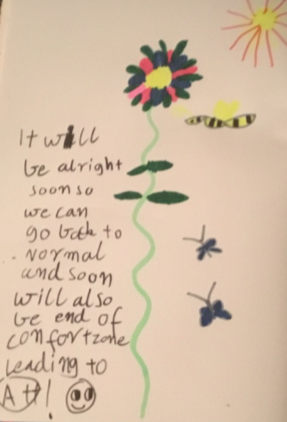 It will
be alright
soon so
we can
go back to
normal
and soon
will also
be end of
comfortzone
leading to